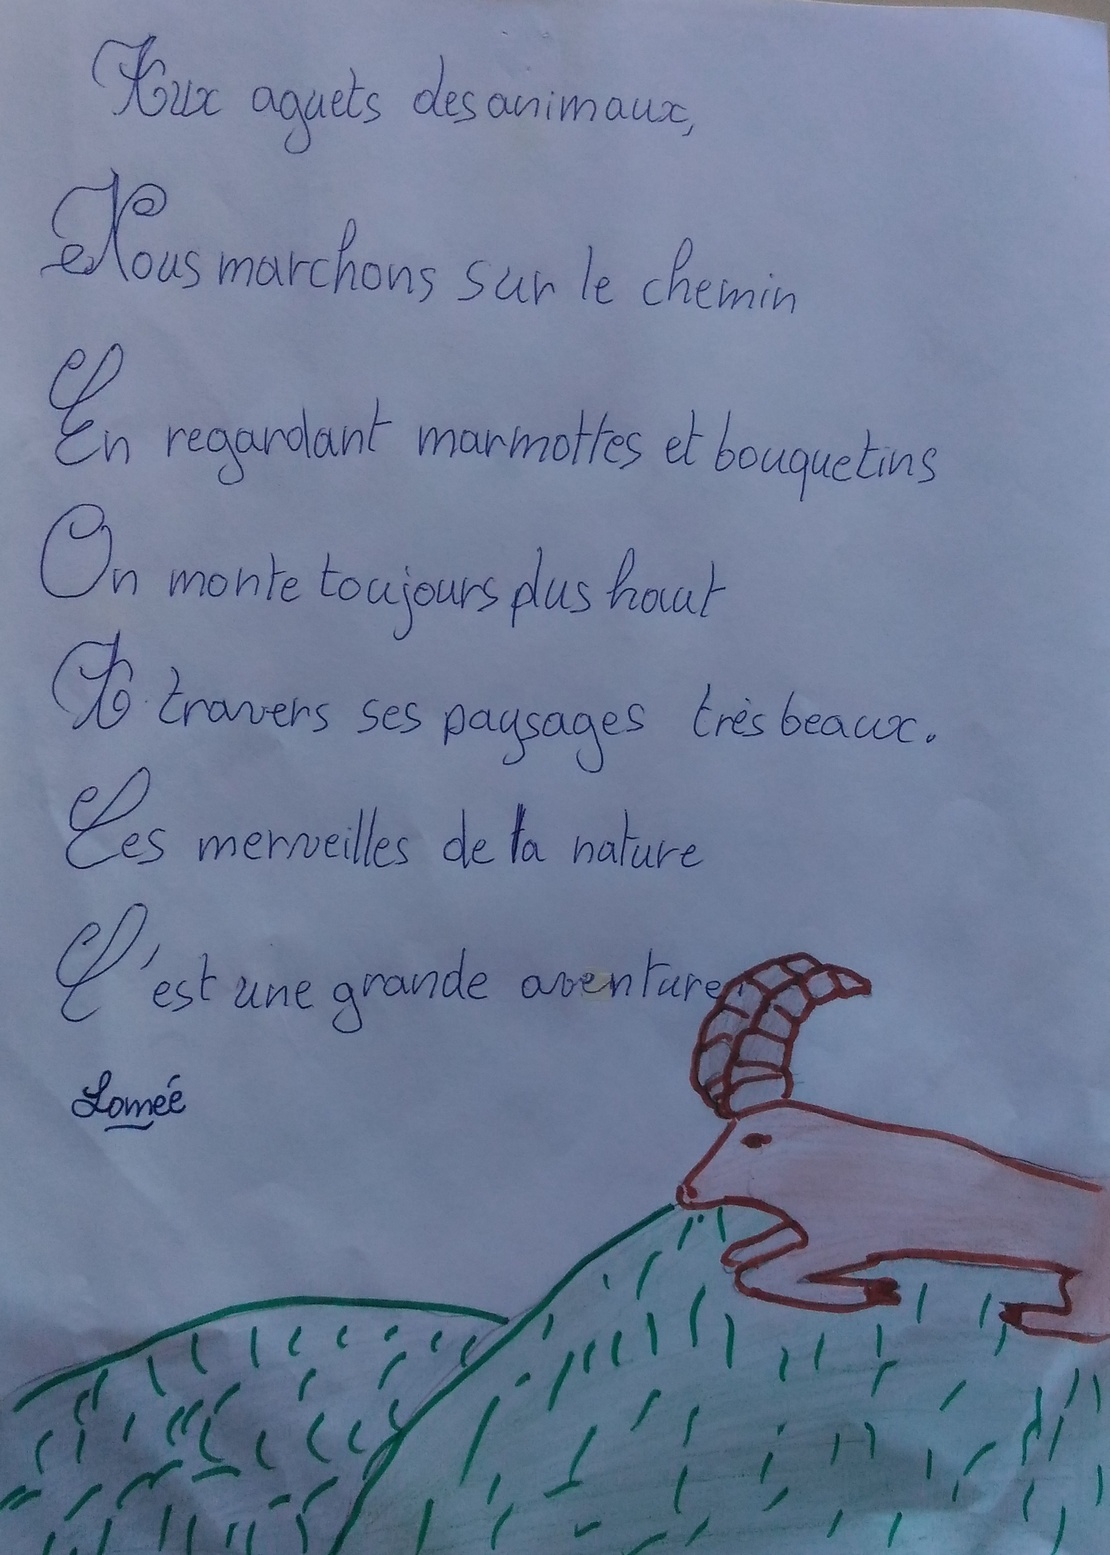 Aux aguets des animaux,
Nous marchons sur le chemin
En regardant marmottes et bouquetins
On monte toujours plus haut
A travers ses paysages très beaux.
Les merveilles de la nature
C'est une grande aventure.
Lomée